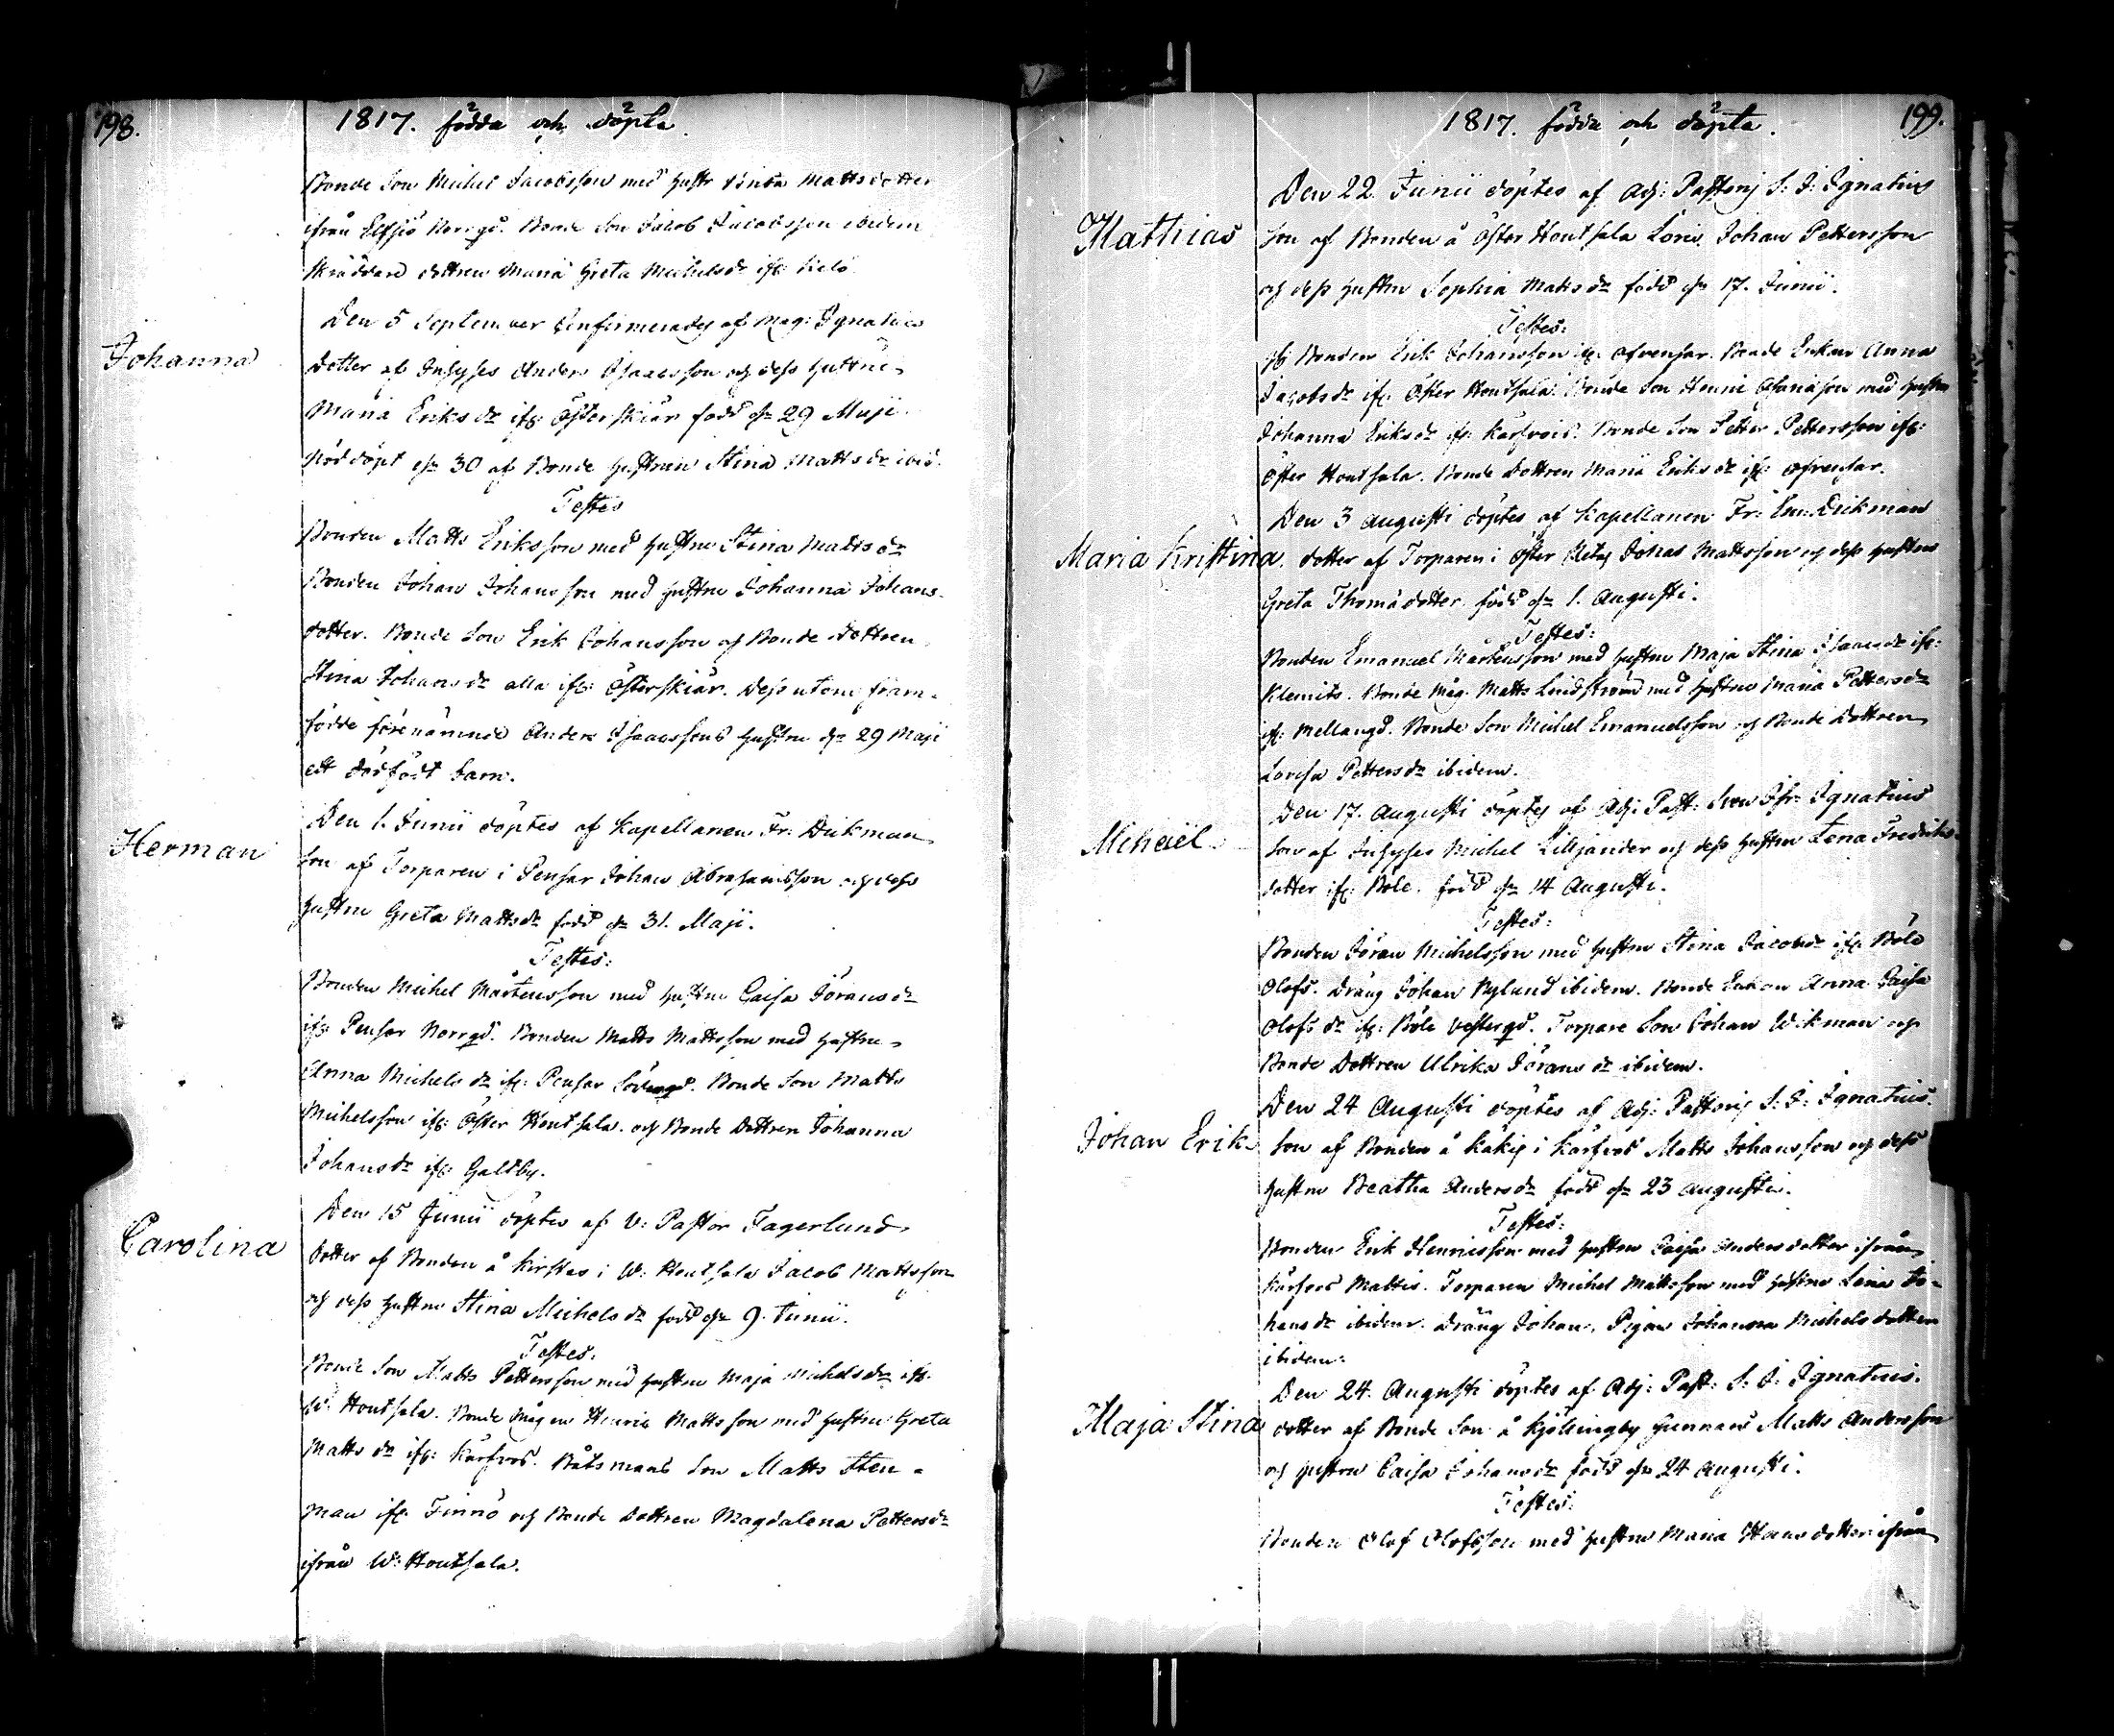 198.
1817. födde och döpta.
Bonde Son Michel Jacobsson med hustr Mattsdotter
ifrån Elfsjö Norrgd. Bonde Son Jacob Jacobsson ibidem
Skräddare dottren Maria Greta Michelsdr ifr:
Johanna
Den 5 September Confirmerades af Mag: Ignatius
dotter af Inhyses Anders Isaacsson och dess hustru
Maria Eriksdr ifr: Österskiär född den 29 Maji
nöd döpt den 30 af Bonde hustrun Stina Mattsdr ibid.
Testes
Bonden Matts Eriksson med hustru Stina Mattsdr
Bonden Johan Johansson med hustru Johanna Johans-
dotter. Bonde Son Erik Johansson och Bonde dottren
Stina Johansdr alla ifr: Österskiär. Dess utom fram-
födde förenämnde Anders Isaacssons hustru den 29 Maji
ett dödfödt barn.
Herman
Den 1. Junii döptes af Kapellanen Fr: Dikman
Son af Torparen i Pensar Johan Abrahamsson och dess
hustru Greta Mattsdr född den 31. Maji.
Testes:
Bonden Michel Mårtensson med hustru Caisa Jöransdr
ifr: Pensar Norrgd. Bonden Matts Mattsson med hustru
Anna Michelsdr ifr: Pensar Södergd. Bonde Son Matts
Michelsson ifr: Öster Houtsala. och Bonde Dottren Johanna
Johansdr ifr: Galtby.
Carolina
Den 15 Junii döptes af V: Pastor Fagerlund
dotter af Bonden å Kirstas i W: Houtsala Jacob Mattsson
och dess hustru Stina Michelsdr född den 9. Junii.
Testes:
Bonde Son Matts Pettersson med hustru Maja Michelsdr ifr.
W: Houtsala. Bonde Mågen Henric Mattsson med hustru Greta
Mattsdr ifr: Kårfvos. Båtsmans Son Matts Sten-
man ifr: Finnö och Bonde dottren Magdalena Pettersdr
ifrån W: Houtsala.
199.
1817. födde och döpta.
Mathias
Den 22. Junii döptes af Adj: Pastoris S: J: Ignatius
Son af Bonden å Öster Houtsala Johan Pettersson
och dess hustru Sophia Mattsdr född den 17. Junii.
Testes:
Bonden Erik Johansson ifr: Ofvensar. Bonde Enkan Anna
Jacobsdr ifr: Öster Houtsala. Bonde Son Henric med hustru
Johanna Eriksdr ifr: Kårfvois. Bonde Son Petter Pettersson ifr:
Öster Houtsala. Bonde Dottren Maria Eriksdr ifr: Ofvensar.
Maria Kristina.
Den 3 Augusti döptes af Kapellanen Fr: Em: Dikman
dotter af Torparen i Öster Retas Johas Mattsson och dess hustru
Greta Thomädotter född den 1. Augusti.
Testes:
Bonden Emanuel Mårtensson med hustru Maja Stina Isaacsdr ifr:
Klemits. Bonde Måg. Matts Lindström med hustru Maria Pettersdr
ifr: Mellangd. Bonde Son Michel Emanuelsson och Bonde Dottren
Lovisa Pettersdr ibidem.
Mihaël
Den 17. Augusti döptes af Adj: Past: Sven Isr: Ignatius
Son af Inhyses Michel Liljander och dess hustru Lena Fredriks-
dotter ifr: Böle. född den 14 Augusti.
Testes:
Bonden Jöran Michelsson med hustru Stina Jacobsdr ifr: Böle
Olofs. Dräng Johan Nylund ibidem. Bonde Enkan Anna Caisa
Olofsdr ifr: Böle Vestergd. Torpare Son Johan Wikman och
Bonde Dottren Ulrika Jöransdr ibidem.
Johan Erik
Den 24 Augusti döptes af Adj: Pastoris S: J: Ignatius.
Son af Bonden å Kakis i Kårfvos Matts Johansson och dess
hustru Beatha Andersdr född den 23 Augusti.
Testes:
Bonden Erik Henricsson med hustru Caisa Andersdotter ifrån
Kårfvos Mattis. Torparen Michel Mattsson med hustru Lena Jo-
hansdr ibidem. Dräng Johan. Pigan Johanna Michelsdotter
ibidem:
Maja Stina
Den 24. Augusti döptes af Adj: Past: S: J: Ignatius.
dotter af Bonde Son å Kjöllingby Gunnars Matts Andersson
och hustru Caisa Johansdr född den 24 Augusti.
Testes:
Bonden Olof Olofsson med hustru Maria Hansdotter ifrån